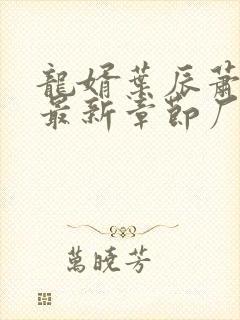 龍婿葉辰蕭
最新章節厂
萬曉芳